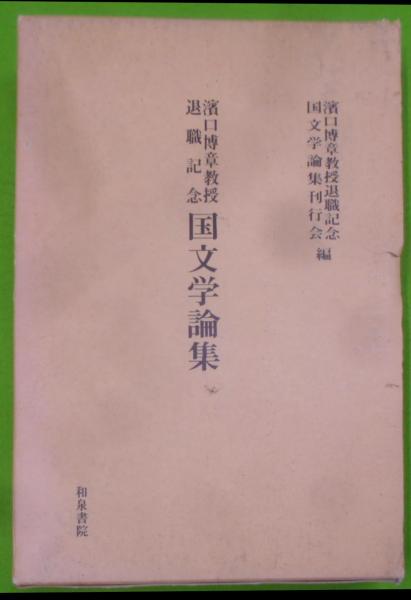 濱口博章教授退職記念
国文学論集刊行会 編
濱口博章教授
退職記念
国文学論集
和泉書院